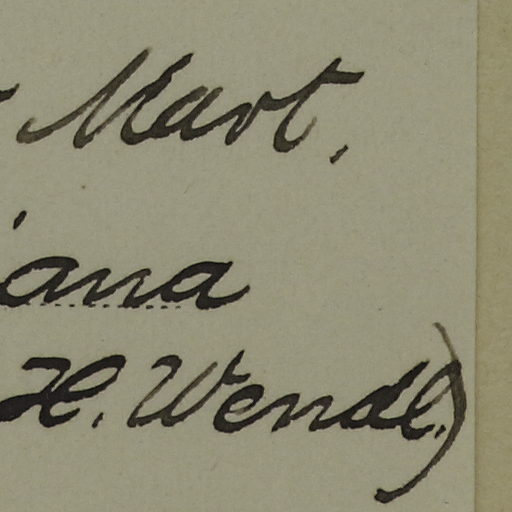 Mart.
iana
H. Wendl.)